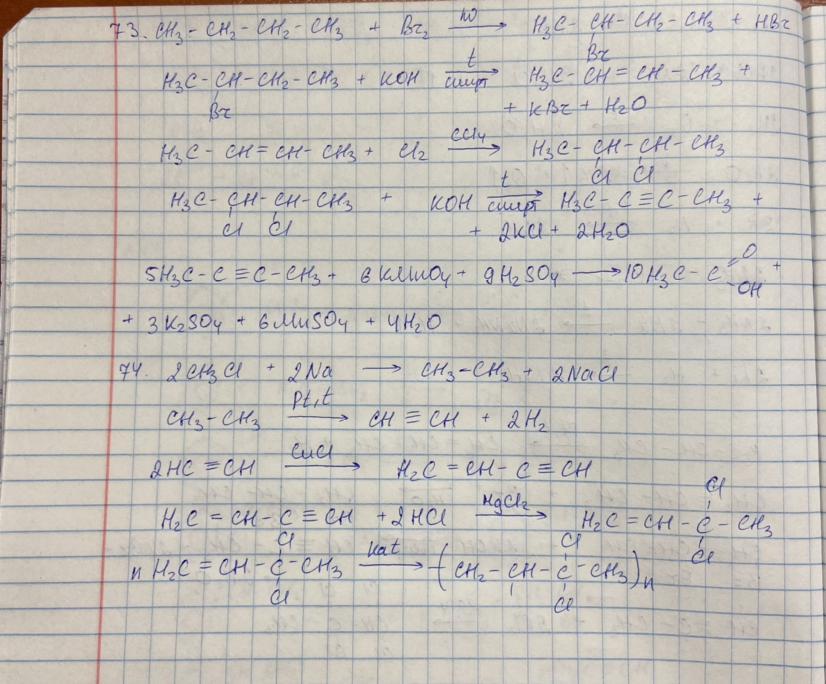 73. CH₃-CH₂-CH₂-CH₃ + Br₂ —hν→ H₃C-CH-CH₂-CH₃ + HBr
Br
H₃C-CH-CH₂-CH₃ + KOH —t, спирт→ H₃C-CH=CH-CH₃ +
Br
+ KBr + H₂O
H₃C-CH=CH-CH₃ + Cl₂ —CCl₄→ H₃C-CH-CH-CH₃
Cl Cl
H₃C-CH-CH-CH₃ + KOH —t, спирт→ H₃C-C≡C-CH₃ +
Cl Cl
+ 2KCl + 2H₂O
5H₃C-C≡C-CH₃ + 6KMnO₄ + 9H₂SO₄ → 10H₃C-C=O-OH +
+ 3K₂SO₄ + 6MnSO₄ + 4H₂O
74. 2CH₃Cl + 2Na → CH₃-CH₃ + 2NaCl
CH₃-CH₃ —Pt,t→ CH≡CH + 2H₂
2HC≡CH —CuCl→ H₂C=CH-C≡CH
Cl
H₂C=CH-C≡CH + 2HCl —HgCl₂→ H₂C=CH-C-CH₃
Cl
Cl Cl
n H₂C=CH-C-CH₃ —kat→ (-CH₂-CH-C-CH₃)n
Cl Cl